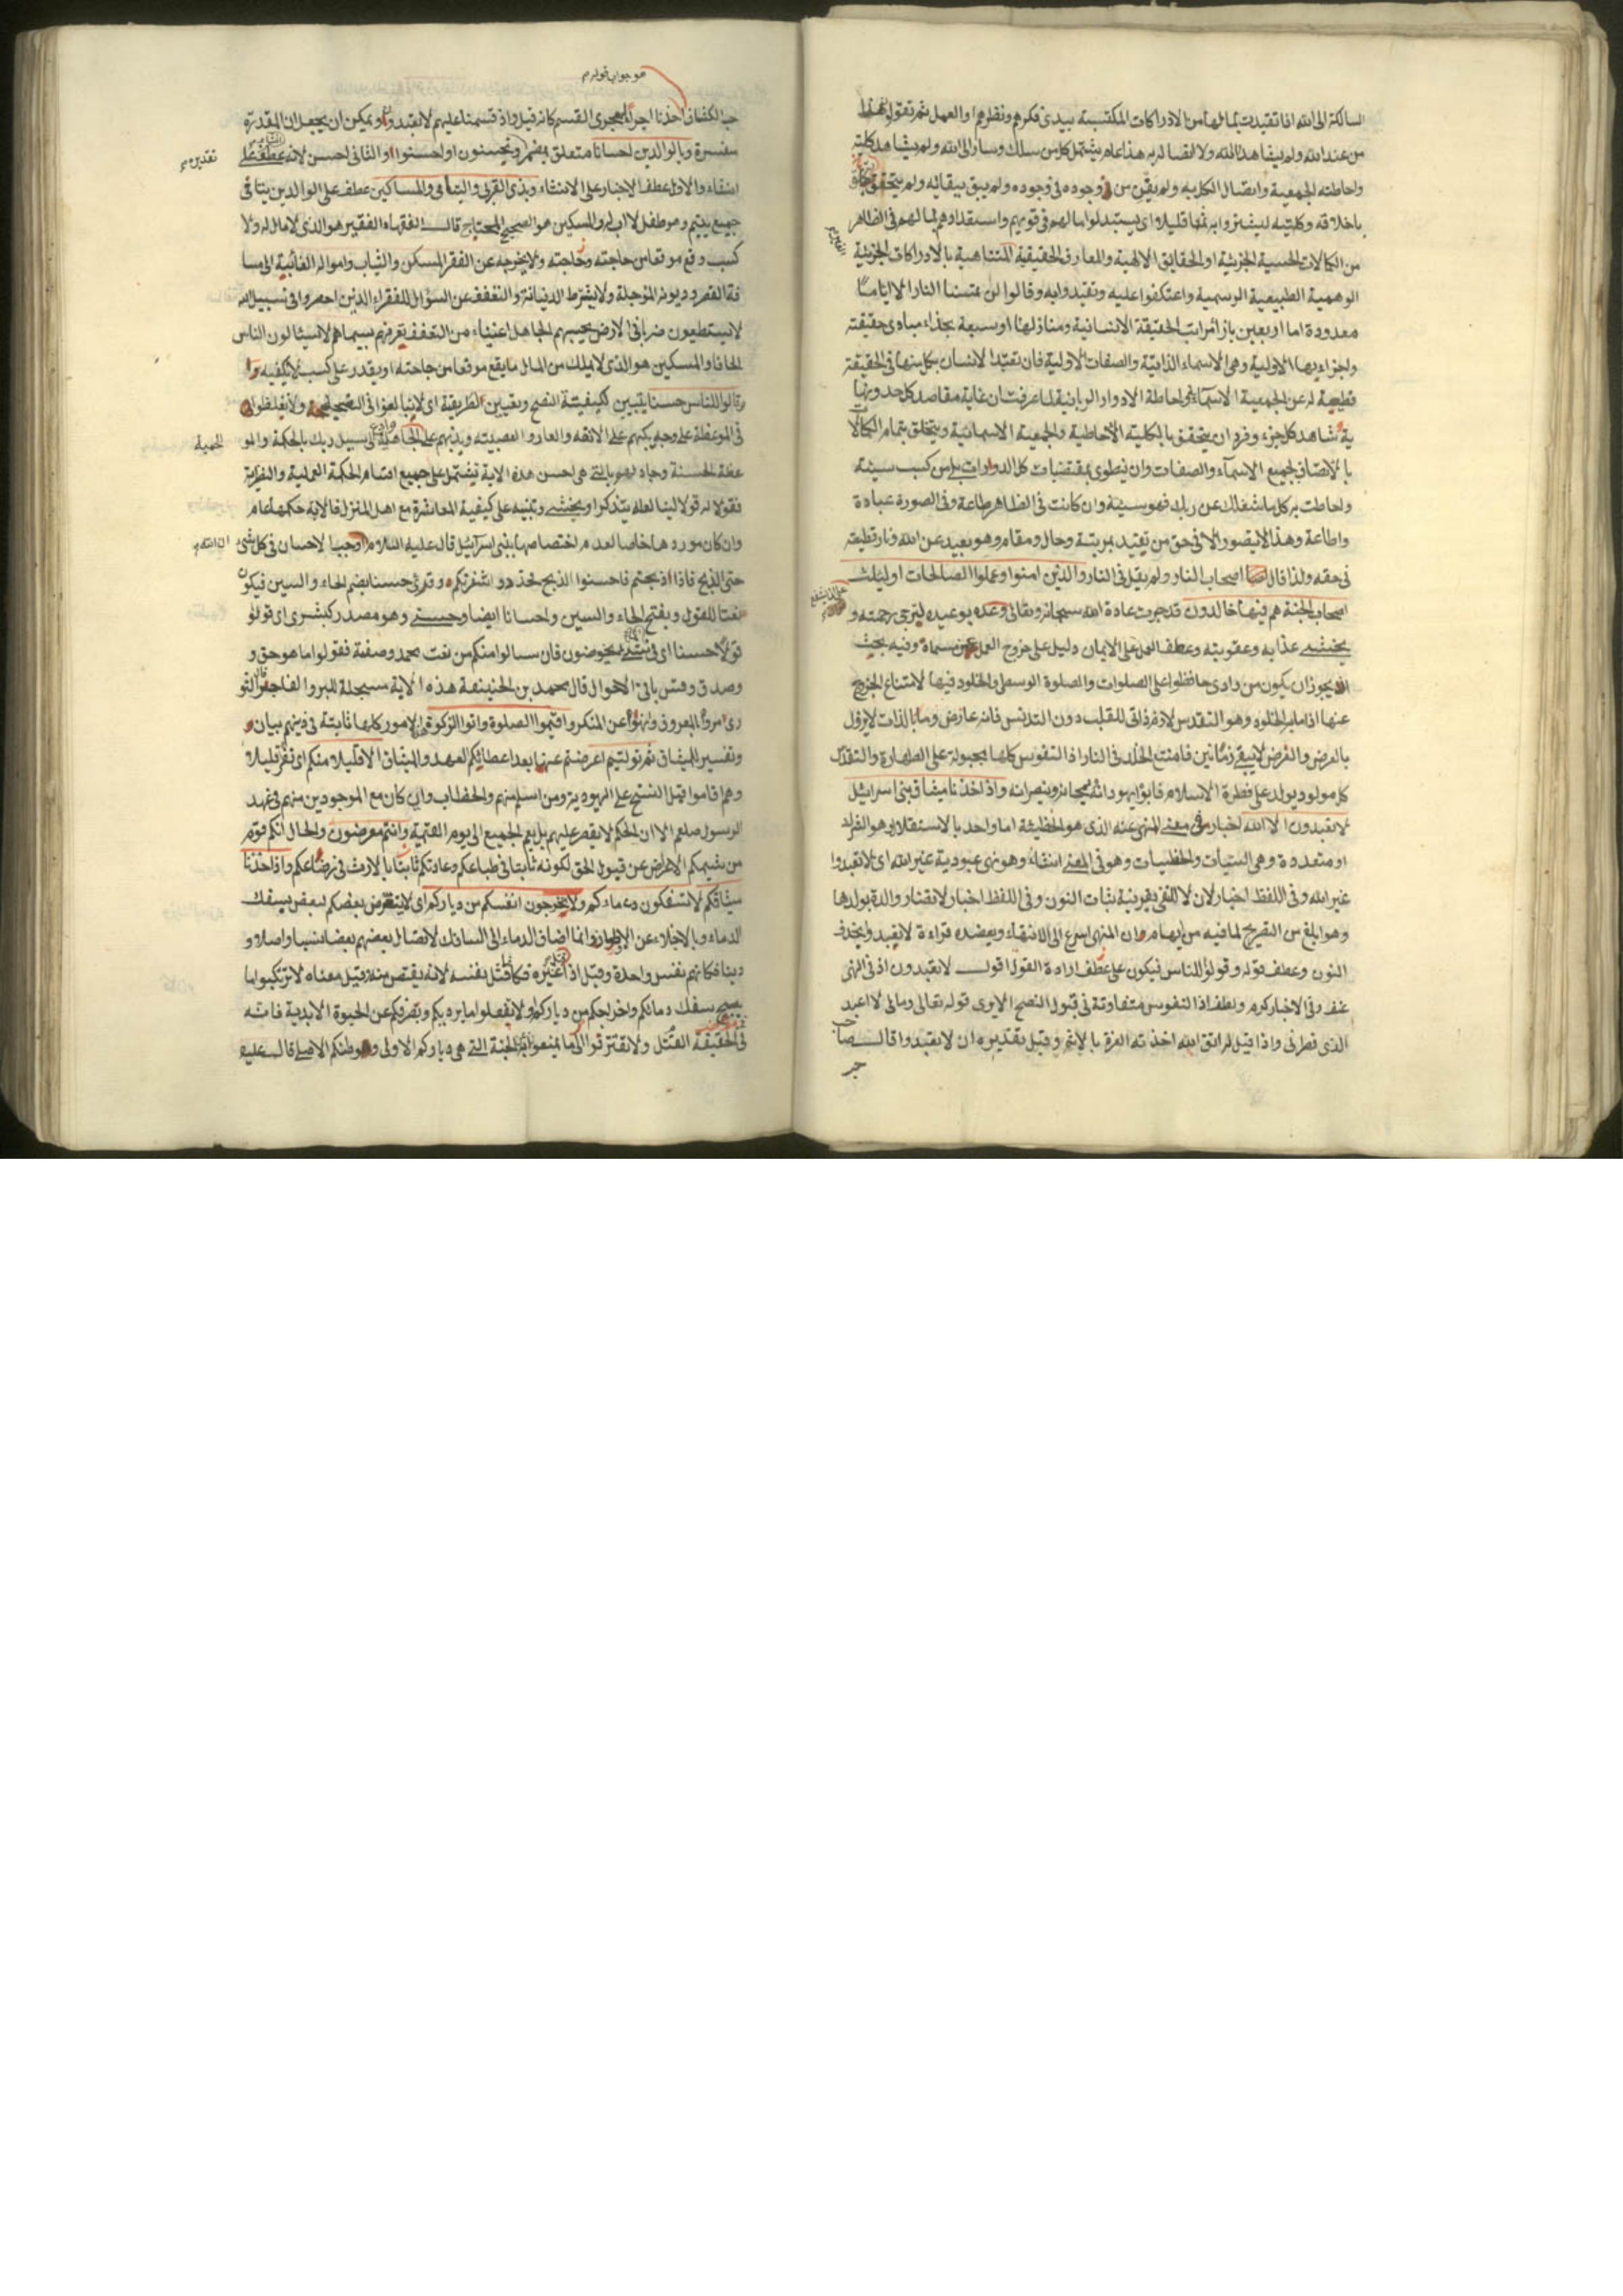 السالكة الى الله اذا تقيدت بمالها من الادراكات المكتسبة بيدى فكرهم ونظرهم او العمل ثم تقول هذا
من عند الله ولم يشاهد الله ولا اتصاله به هذا عام يشتمل كل من سلك وسار الى الله ولم يشاهد كليته
واحاطته الجمعية واتصال الكل به ولم يفن من وجوده فى وجوده ولم يبق ببقائه ولم يتحقق
باخلاقه وكليته ليشتروا به ثمنا قليلا اى يستبدلوا مالهم فى قوتهم واستعدادهم لما لهم فى الظاهر
من الكمالات الحسية الجزئية او الحقايق الالهية والمعارف الحقيقية المتناهية بالادراكات الجزئية
الوهمية الطبيعية الرسمية واعتكفوا عليه وتقيدوا به وقالوا لن تمسنا النار الا اياما
معدودة اما اربعين بازاء مراتب الحقيقة الانسانية ومنازلها او سبعة بحذاء مبادى حقيقته
واجزاءيها الاولية وهى الاسماء الذاتية والصفات الاولية فان تقيد الانسان بكل منها فى الحقيقة
قطيعة له عن الجمعية الاسمائية واحاطة الادوار الربانية لما عرفت ان غاية مقاصد كل حد ونها
ية شاهد كل جزء وفرد ان يتحقق بالكلية الاحاطية والجمعية الاسمائية ويتخلق بتمام الكمالا
بالاتصاف بجميع الاسماء والصفات وان ينطوى بمقتضيات كل الدورات بلى من كسب سيئة
واحاطت به كل ما شغلك عن ربك فهو سيئة وان كانت فى الظاهر طاعة وفى الصورة عبادة
واطاعة وهذا لا يتصور الا فى حق من تقيد بمرتبة وحال ومقام وهو بعيد عن الله ونار قطيعته
فى حقه ولذا قال اصحاب النار ولم يقل فى النار والذين امنوا وعملوا الصالحات اولئك
اصحاب الجنة هم فيها خالدون قد جرت عادة الله سبحانه وتعالى وعده بوعيده ليترجى رحمته و
يخشى عذابه وعقوبته وعطف العمل على الايمان دليل على خروج العمل عن مسماه وفيه بحث
اذ يجوز ان يكون من وادى حافظوا على الصلوات والصلوة الوسطى والخلود فيها لامتناع الخروج
عنها اذ امارة الخلود وهو التقدس لازم ذاتى للقلب دون التدنس فانه عارض وما بالذات لا يزول
بالعرض والعرض لا يبقى زمانين فامتنع الخلد فى النار اذ النفوس كلها مجبولة على الطهارة والتقدس
كل مولود يولد على فطرة الاسلام فابواه يهودانه ويمجسانه وينصرانه واذ اخذنا ميثاق بنى اسرائيل
لا تعبدون الا الله اخبار فى معنى النهى عنه الذى هو الخطيئة اما واحد بالاستقلال وهو الشرك
او متعددة وهى السيئات والخطيئات وهو فى المعنى انشاء وهو نهى عبودية غير الله اى لا تعبدوا
غير الله وفى اللفظ اخبار لان لا للنفى بقرينة ثبات النون وفى اللفظ اخبار لا تضار والدة بولدها
وهو ابلغ من التصريح لما فيه من ايهام ان المنهى اسرع الى الانتهاء ويعضده قراءة لا تعبدوا بحذف
النون وعطف قوله وقولوا للناس فيكون على عطف ارادة القول اقول لا تعبدون اذ فى النهى
عنف وفى الاخبار كرم ولطف اذ النفوس متفاوتة فى قبول النصح الا يرى قوله تعالى ومالى لا اعبد
الذى فطرنى واذا قيل له اتق الله اخذته العزة بالاثم وقيل تقديره ان لا تعبدوا قال صاحب
هو جواب قوله
حب الكشاف اخذنا اجراء مجرى القسم كانه قيل واذ قسمنا عليهم لا تعبدون ويمكن ان يجعل ان المقدرة
مفسرة وبالوالدين احسانا متعلق بمضمر وتحسنون او احسنوا والثانى احسن لانه عطف على
تقديره
انشاء والاول عطف الاخبار على الانشاء وبذى القربى واليتامى والمساكين عطف على الوالدين يتامى
جميع يتيم وهو طفل لا اب له والمسكين هو الصحيح المحتاج قالت الفقهاء الفقير هو الذى لا مال له ولا
كسب وقع موقعا من حاجته ولا يخرجه عن الفقر المسكن والثياب وامواله الغائبة الى مسا
فة القصر وديونه المؤجلة ولا يشترط الديانة والتعفف عن السؤال للفقراء الذين احصروا فى سبيل الله
لا يستطيعون ضربا فى الارض يحسبهم الجاهل اغنياء من التعفف تعرفهم بسيماهم لا يسئالون الناس
الحافا والمسكين هو الذى لا يملك من المال ما يقع موقعا من حاجته او يقدر على كسب لا يكفيه
وقالوا للناس حسنا تبيين لكيفية النصح وتعيين الطريقة اى لا تبالغوا فى النصيحة ولا تغلظوا
فى الموعظة على وجه يكبهم على الانفة والعار والعصبية ويدلهم على الجاهلية الى سبيل ربك بالحكمة والمو
الحمية
عظة الحسنة وجادلهم بالتى هى احسن هذه الاية تشتمل على جميع اقسام الحكمة العملية والنظرية
فقولا له قولا لينا لعله يتذكر او يخشى وتنبيه على كيفية المعاشرة مع اهل المنزل فالاية حكمها عام
وان كان موردها خاصا لعدم اختصاصها ببنى اسرائيل قال عليه السلام اوجب الاحسان فى كل شئ
ان الله
حتى الذبح فاذا اذبحتم فاحسنوا الذبح فحددوا شفرتكم وقرئ حسنا بضم الحاء والسين فيكون
نعتا للقول وبفتح الحاء والسين واحسانا ايضا وحسنى وهو مصدر كبشرى اى قولوا
قولا حسنا اى فى شئ يخوضون فان سالوا منكم من نعت محمد وصفته فقولوا ما هو حق و
وصدق وقس باقى الاحوال قال محمد بن الحنيفة هذه الاية مسجلة للبر والفاجر الثو
رى امروا بالمعروف ونهوا عن المنكر واقيموا الصلوة واتوا الزكوة الامور كلها ثابتة فى دينهم بيان
وتفسير للميثاق ثم توليتم اعرضتم عنها بعد اعطائكم العهد والميثاق الا قليلا منكم اى نفر قليلا
وهم اقاموا قبل النسخ على اليهودية ومن اسلم منهم والخطاب وان كان مع الموجودين منهم فى عهد
الرسول صلعم الا ان الحكم لا يقصر عليهم بل يعم الجميع الى يوم القيمة وانتم معرضون والحال انكم قوم
من شيمكم الاعراض عن قبول الحق لكونه ثابتا فى طباعكم وعادتكم ثابتا بالارث فى رضاعكم واذ اخذنا
ميثاقكم لا تسفكون دماءكم ولا تخرجون انفسكم من دياركم اى لا يتعرض بعضكم لبعض بسفك
الدماء وبالاجلاء عن الاوطان وانما اضاف الدماء الى السافك لاتصال بعضهم بعضا نسبا واصلا و
دينا فكانهم نفس واحدة وقيل اذا غيره فكانما قتل نفسه لانه يقتص منه وقيل معناه لا ترتكبوا ما
يبيح سفك دمائكم واخراجكم من دياركم او لا تفعلوا ما يرديكم ويصرفكم عن الحيوة الابدية فانه
فى الحقيقة القتل ولا تقترفوا ما تمنعوا به الجنة التى هى دياركم الاولى وموطنكم الاصلى قال عليه